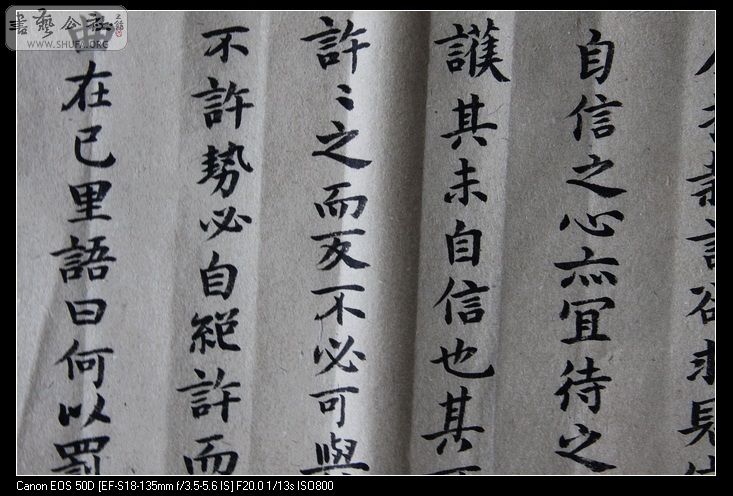 欲求見
自信之心亦冝待之
護其未自信也其
許〻之而反不必可與
不許勢必自絕許而
曲在已里語曰何以罰
書藝公社
WWW.SHUFA.ORG
Canon EOS 50D [EF-S18-135mm f/3.5-5.6 IS] F20.0 1/13s ISO800